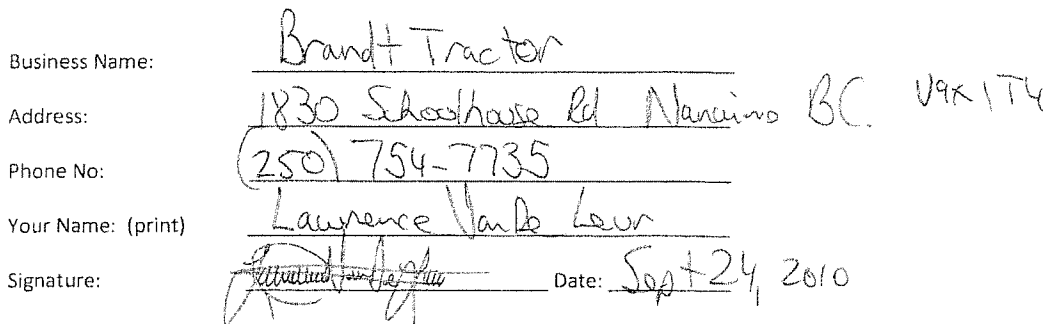 Business Name: Brandt Tractor
Address: 1830 Schoolhouse Rd Nanaimo BC. V9X 1T4
Phone No: (250) 754-7735
Your Name: (print) Lawrence VanDe Leur
Signature: Date: Sept 24, 2010